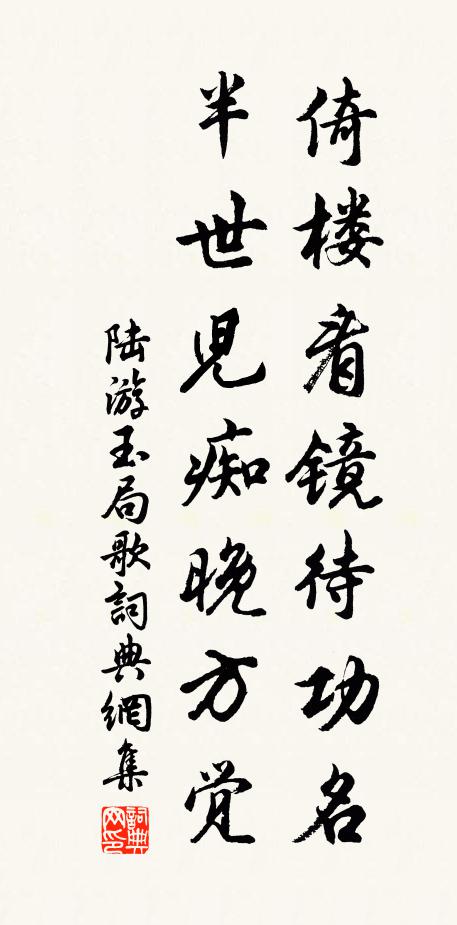 倚楼看镜待功名
半世児痴晚方觉
陆游玉局歌詞典網集
詞典
网印